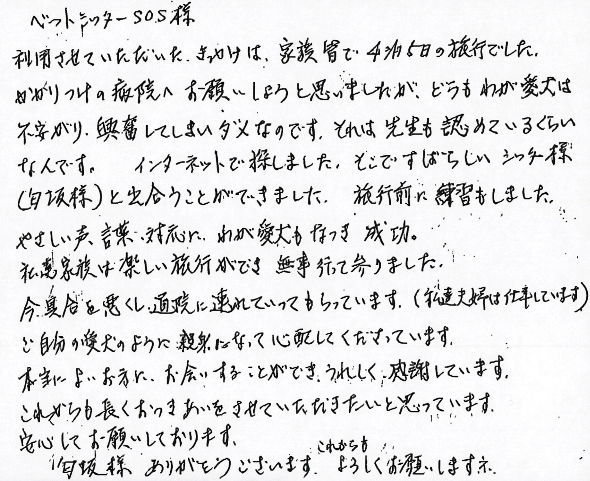 ペットシッターSOS様
利用させていただいた、きっかけは、家族皆で4泊5日の旅行でした。
かかりつけの病院へお願いしようと思いましたが、どうもわが愛犬は
不安がり、興奮してしまいダメなのです。それは先生も認めているくらい
なんです。 インターネットで探しました。そこですばらしいシッター様
(匂坂様)と出会うことができました。 旅行前に練習もしました。
やさしい声、言葉、対応に、わが愛犬もなつき成功。
私達家族は楽しい旅行ができ無事行って参りました。
今具合を悪くし通院に連れていってもらっています。(私達夫婦は仕事しています)
ご自分の愛犬のように親身になって心配してくださっています。
本当によいお方に、お会いすることができ、うれしく、感謝しています。
これからも長くおつきあいをさせていただきたいと思っています。
安心してお願いしております。
匂坂様 ありがとうございます。これからもよろしくお願いしますネ。